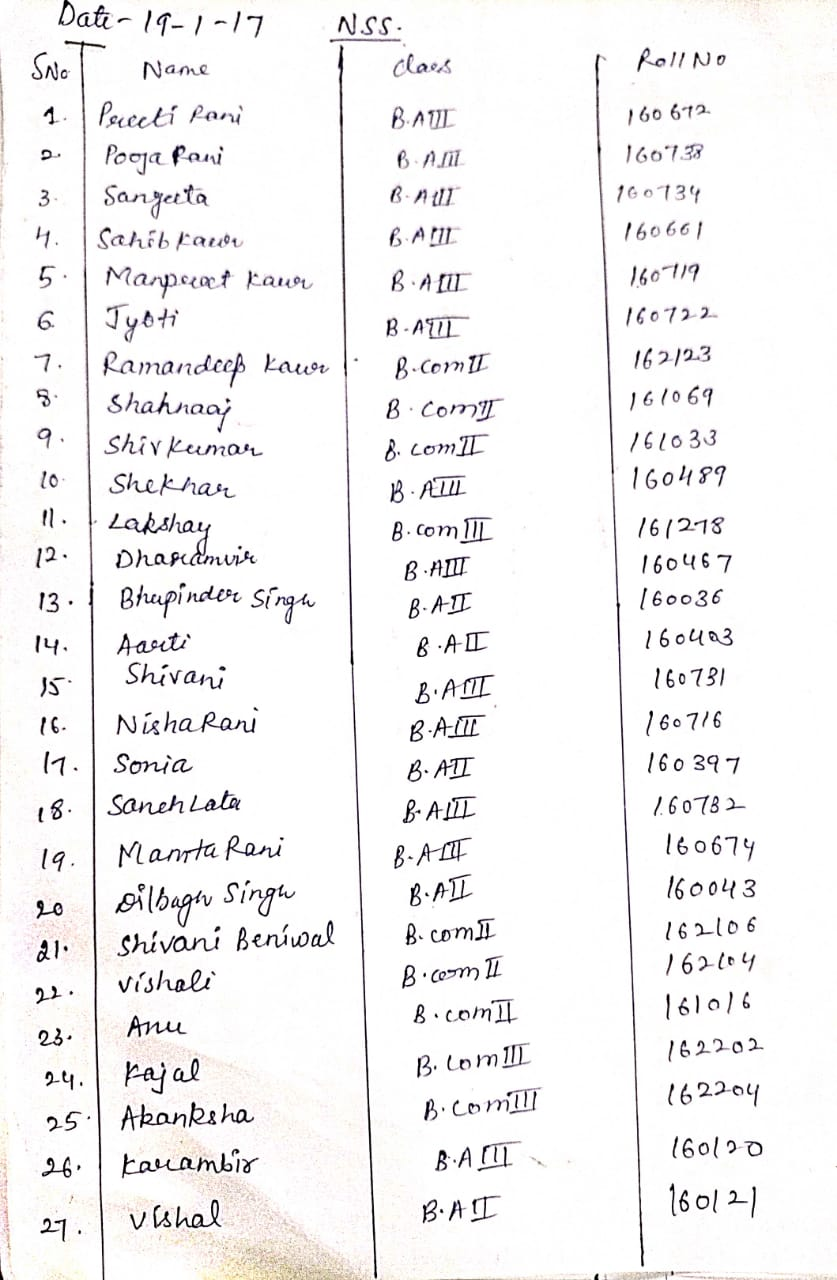 Date- 19-1-17 NSS.
SNo Name Class Roll No
1. Preeti Rani B.A III 160672
2. Pooja Rani B.A III 160738
3. Sangeeta B.A III 160734
4. Sahib Kaur B.A III 160661
5. Manpreet Kaur B.A III 160719
6. Jyoti B.A III 160722
7. Ramandeep Kaur B.com II 162123
8. Shahnaaj B.Com II 161069
9. Shiv Kumar B.com II 161033
10. Shekhar B.A III 160489
11. Lakshay B.com III 161278
12. Dharamvir B.A III 160467
13. Bhupinder Singh B.A II 160036
14. Aarti B.A II 160403
15. Shivani B.A III 160731
16. Nisha Rani B.A III 160716
17. Sonia B.A II 160397
18. Saneh Lata B.A III 160782
19. Mamta Rani B.A III 160674
20 Dilbagh Singh B.A II 160043
21. Shivani Beniwal B.com II 162106
22. Vishali B.com II 162104
23. Anu B.com II 161016
24. Kajal B.Com III 162202
25. Akanksha B.Com III 162204
26. Karambir B.A III 160120
27. Vishal B.A II 160121